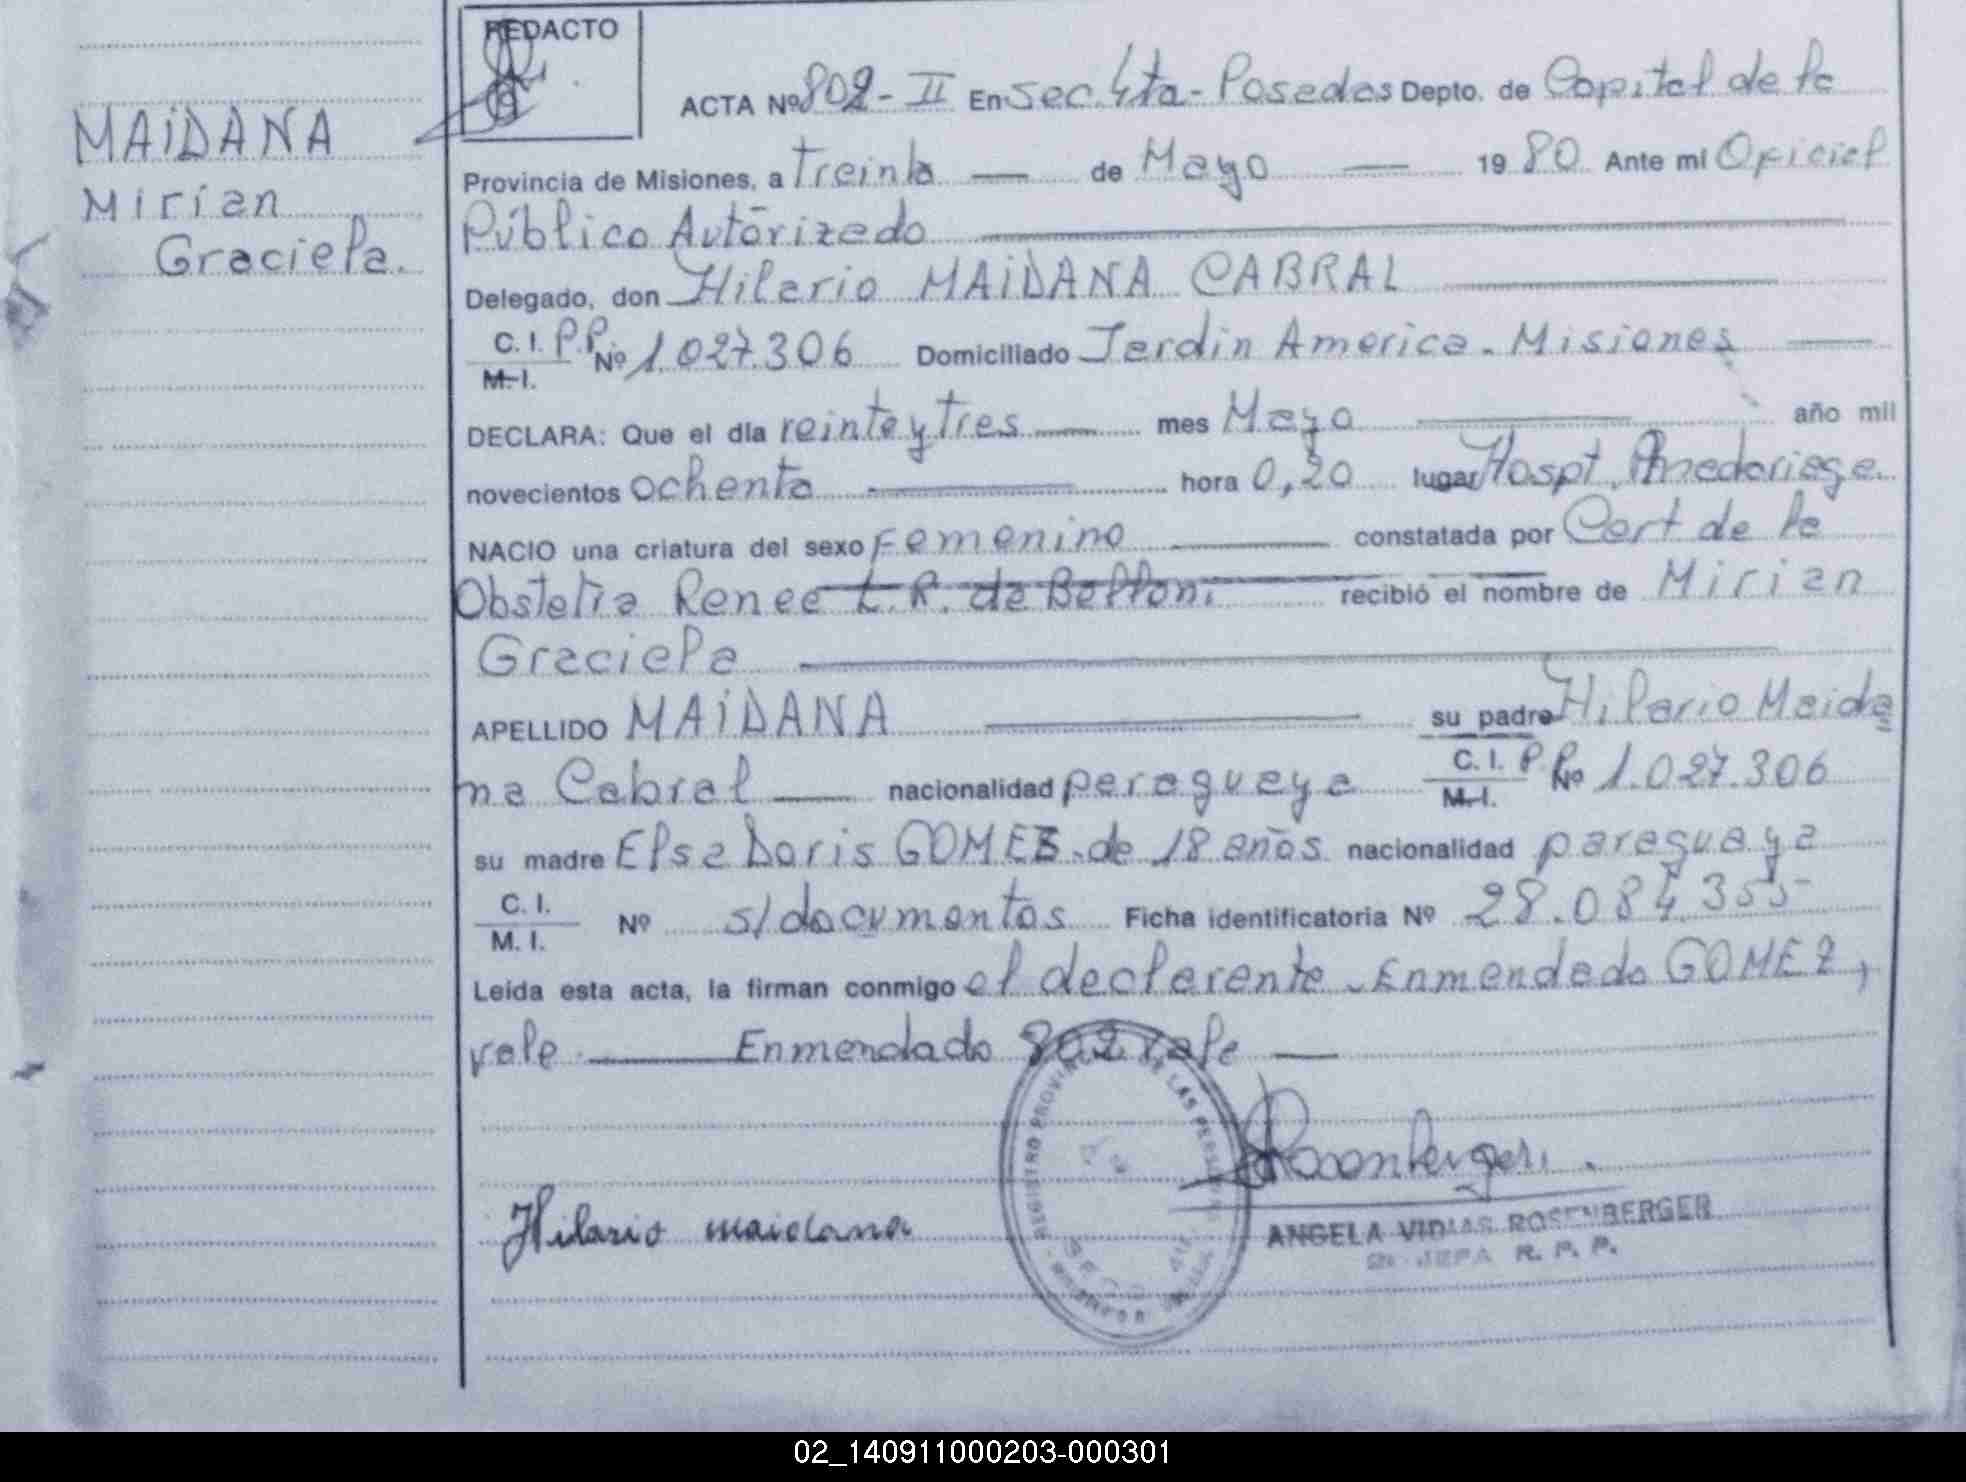 REDACTO
MAIDANA
Mirian
Graciela.
ACTA Nº 802 - II En Sec. 4ta - Posadas Depto. de Capital de la
Provincia de Misiones, a treinta — de Mayo — 1980. Ante mi Oficial
Público Autorizado
Delegado, don Hilario MAIDANA CABRAL
C. I. P.P. Nº 1.027.306 Domiciliado Jardin America - Misiones
M. I.
DECLARA: Que el dia veinteytres mes Mayo año mil
novecientos ochenta hora 0,20 lugar Hospt. Madariaga.
NACIO una criatura del sexo Femenino constatada por Cert de la
Obstetra Renee L. R. de Belloni recibió el nombre de Mirian
Graciela
APELLIDO MAIDANA su padre Hilario Maida
na Cabral nacionalidad paraguaya C. I. P.P. Nº 1.027.306
M. I.
su madre Elsa Doris GOMEZ - de 18 años nacionalidad paraguaya
C. I.
M. I. Nº s/documentos Ficha identificatoria Nº 28.084.355
Leida esta acta, la firman conmigo el declarante - Enmendado GOMEZ,
vale Enmendado 802 vale
REGISTRO PROVINCIAL DE LAS PERSONAS
Hilario maidana
Rosenberger
ANGELA VIDIAS ROSENBERGER
JEFA R. P. P.
02_140911000203-000301